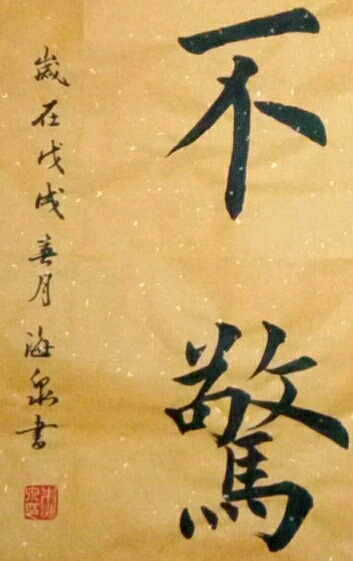 不驚
歲在戊戌春月海泉書